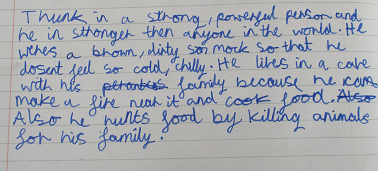 Thunk in a strong, powerful person and
he in stronger then anyone in the world. He
weres a brown, dirty smock so that he
dosent feel so cold, chilly. He lives in a cave
with his family because he can
make a fire near it and cook food. Also
Also he hunts food by killing animals
for his family.